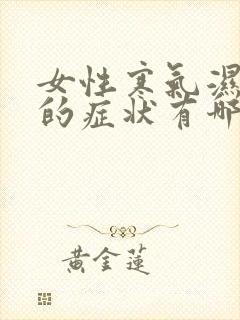 女性寒氣濕
的症状有哪
黃金蓮